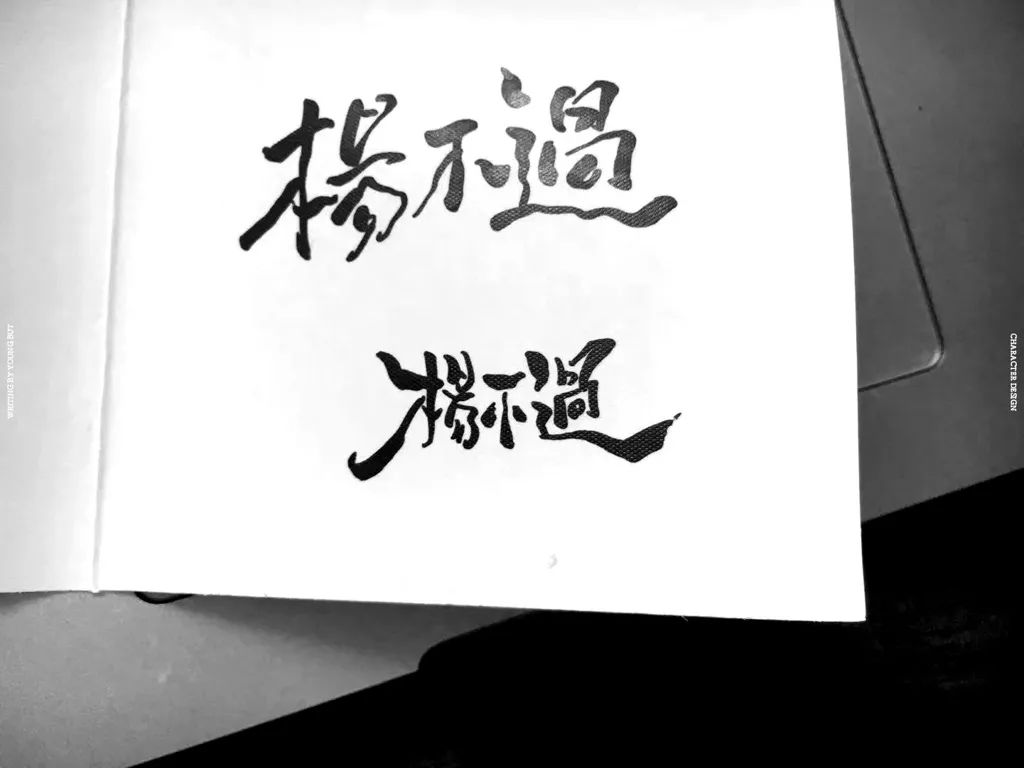 楊不過
楊不過
WRITING BY YOUNG BUT
CHARACTER DESIGN